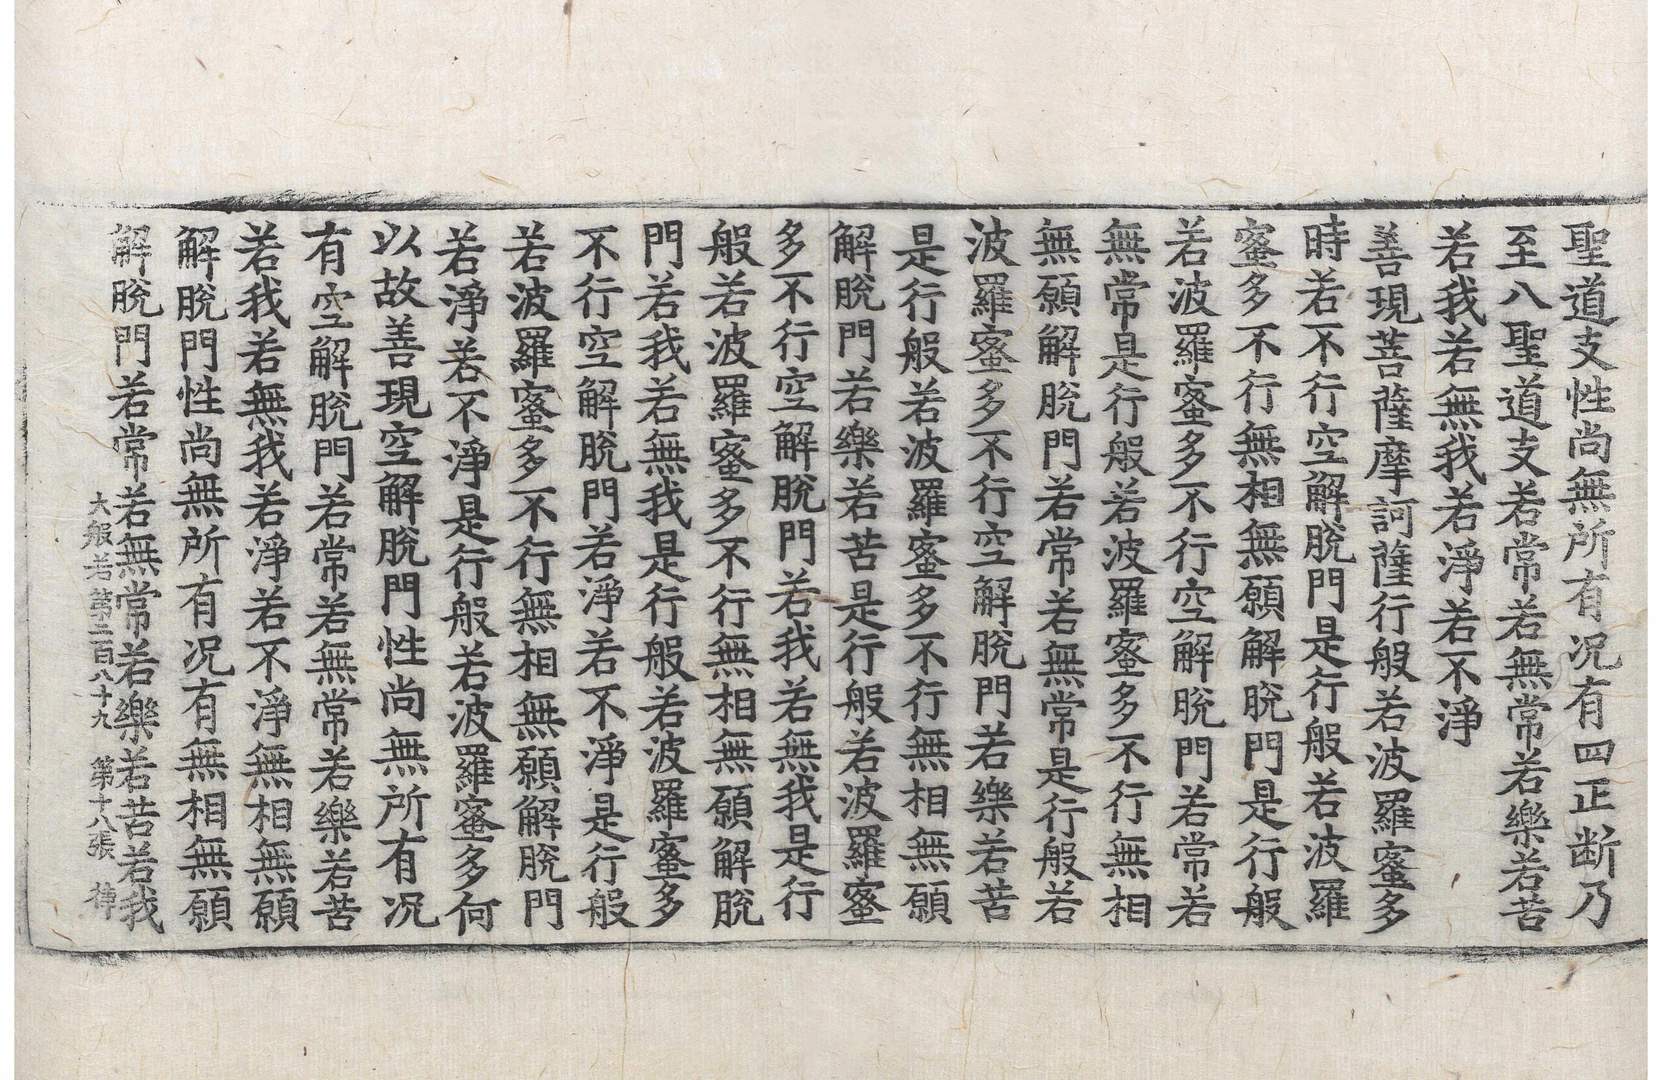 聖道支性尚無所有况有四正断乃
至八聖道支若常若無常若樂若苦
若我若無我若淨若不淨
善現菩薩摩訶薩行般若波羅蜜多
時若不行空解脫門是行般若波羅
蜜多不行無相無願解脫門是行般
若波羅蜜多不行空解脫門若常若
無常是行般若波羅蜜多不行無相
無願解脫門若常若無常是行般若
波羅蜜多不行空解脫門若樂若苦
是行般若波羅蜜多不行無相無願
解脫門若樂若苦是行般若波羅蜜
多不行空解脫門若我若無我是行
般若波羅蜜多不行無相無願解脫
門若我若無我是行般若波羅蜜多
不行空解脫門若淨若不淨是行般
若波羅蜜多不行無相無願解脫門
若淨若不淨是行般若波羅蜜多何
以故善現空解脫門性尚無所有况
有空解脫門若常若無常若樂若苦
若我若無我若淨若不淨無相無願
解脫門性尚無所有况有無相無願
解脫門若常若無常若樂若苦若我
大般若第二百八十九 第十八張